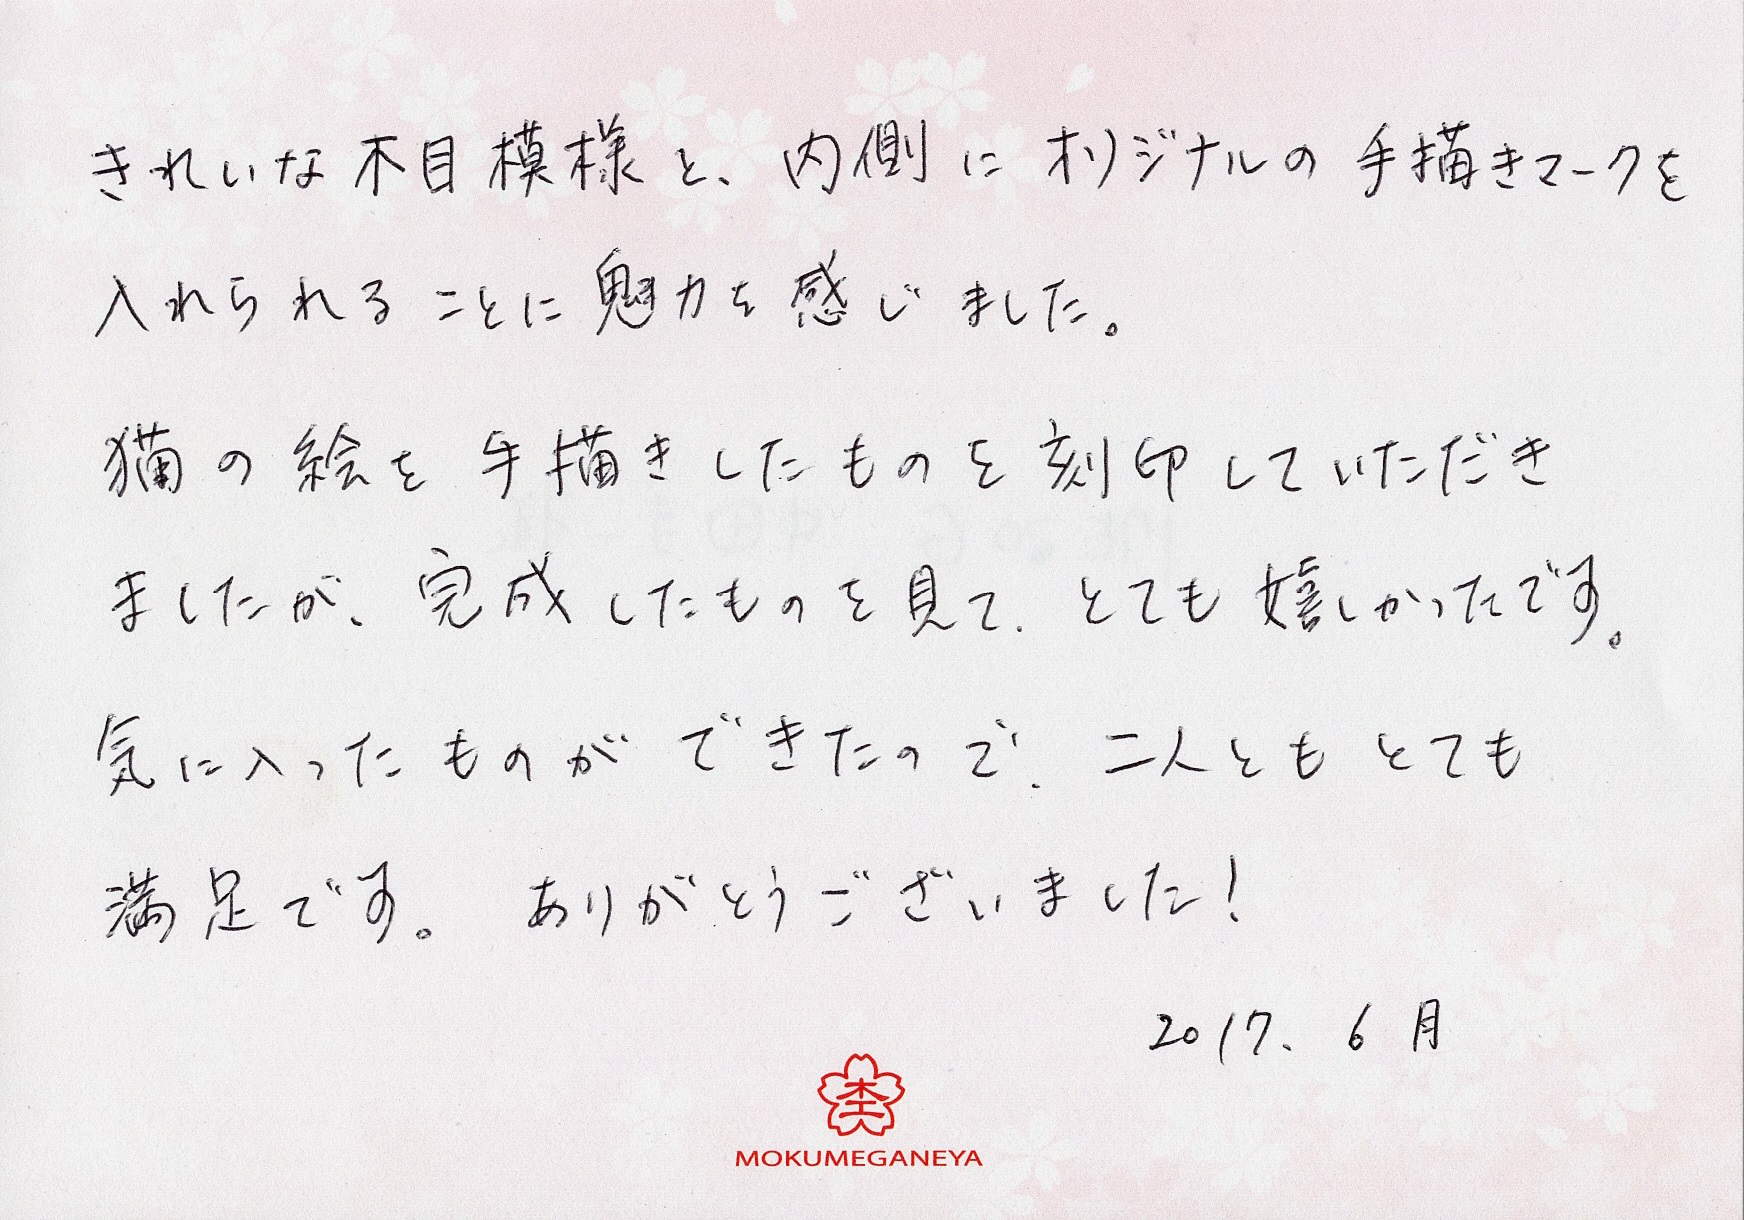 きれいな木目模様と、内側にオリジナルの手描きマークを
入れられることに魅力を感じました。
猫の絵を手描きしたものを刻印していただき
ましたが、完成したものを見て、とても嬉しかったです。
気に入ったものができたので、二人ともとても
満足です。ありがとうございました!
2017. 6月
MOKUMEGANEYA